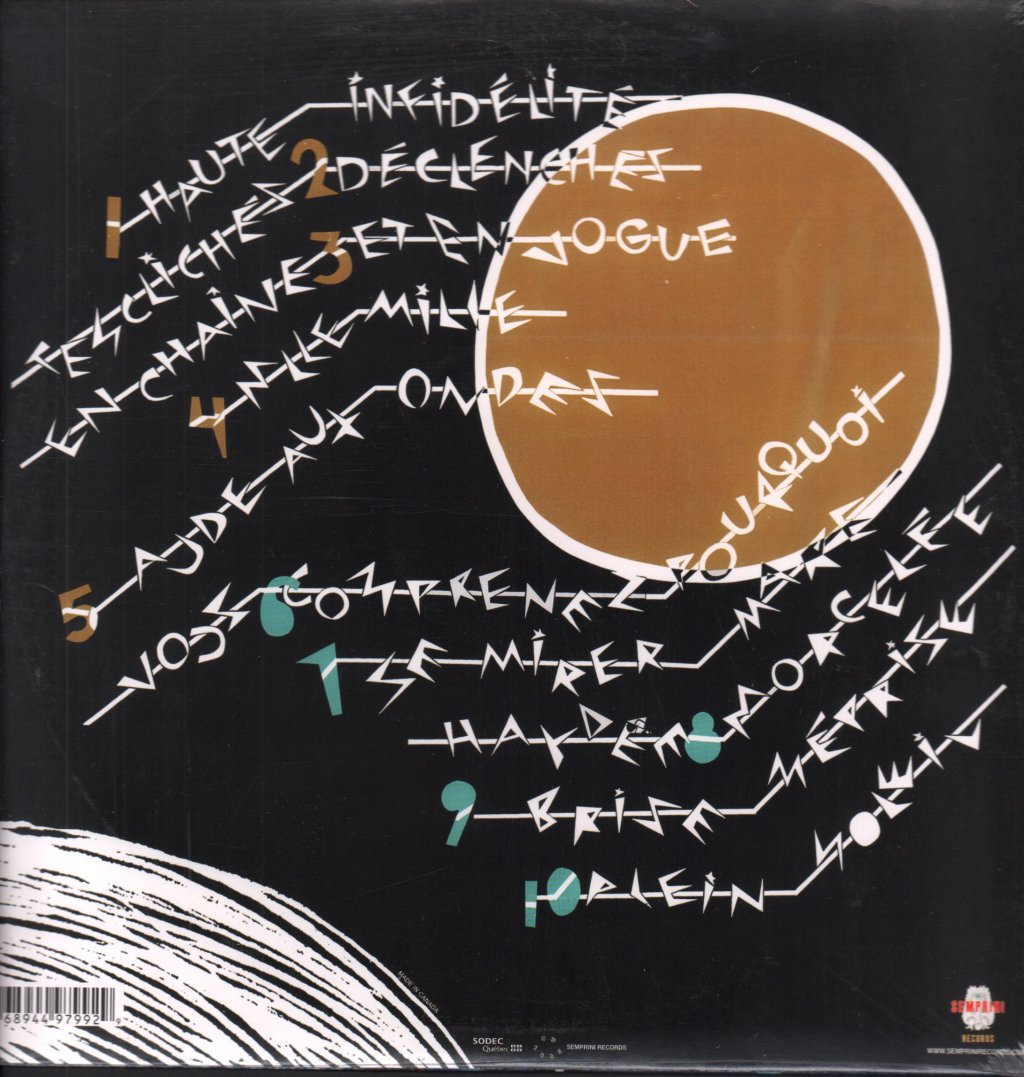 1 HAUTE INFIDÉLITÉ
TES CLICHÉS 2 DÉCLENCHES
EN CHAÎNE 3 ET EN VOGUE
4 MLLE MILLE
5 AUDE AUX ONDES
VOUS 6 COMPRENEZ POURQUOI
7 SE MIRER
HAYDÉE 8 MORCELÉE
9 BRISE MÉPRISE
10 PLEIN SOLEIL
MADE IN CANADA
68944 97992 9
SODEC
Québec
SEMPRINI RECORDS
SEMPRINI
RECORDS
WWW.SEMPRINIRECORDS.CO